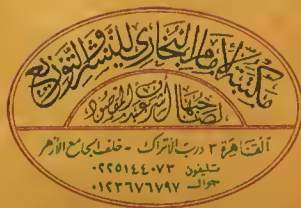 مكتبة الإمام البخاري للنشر والتوزيع
لصاحبها أشرف بن عبد المقصود
القاهرة ٣ درب الأتراك - خلف الجامع الأزهر
تليفون ٠٢٢٥١٤٤٠٧٣
جوال ٠١٢٣٦٧٦٧٩٧